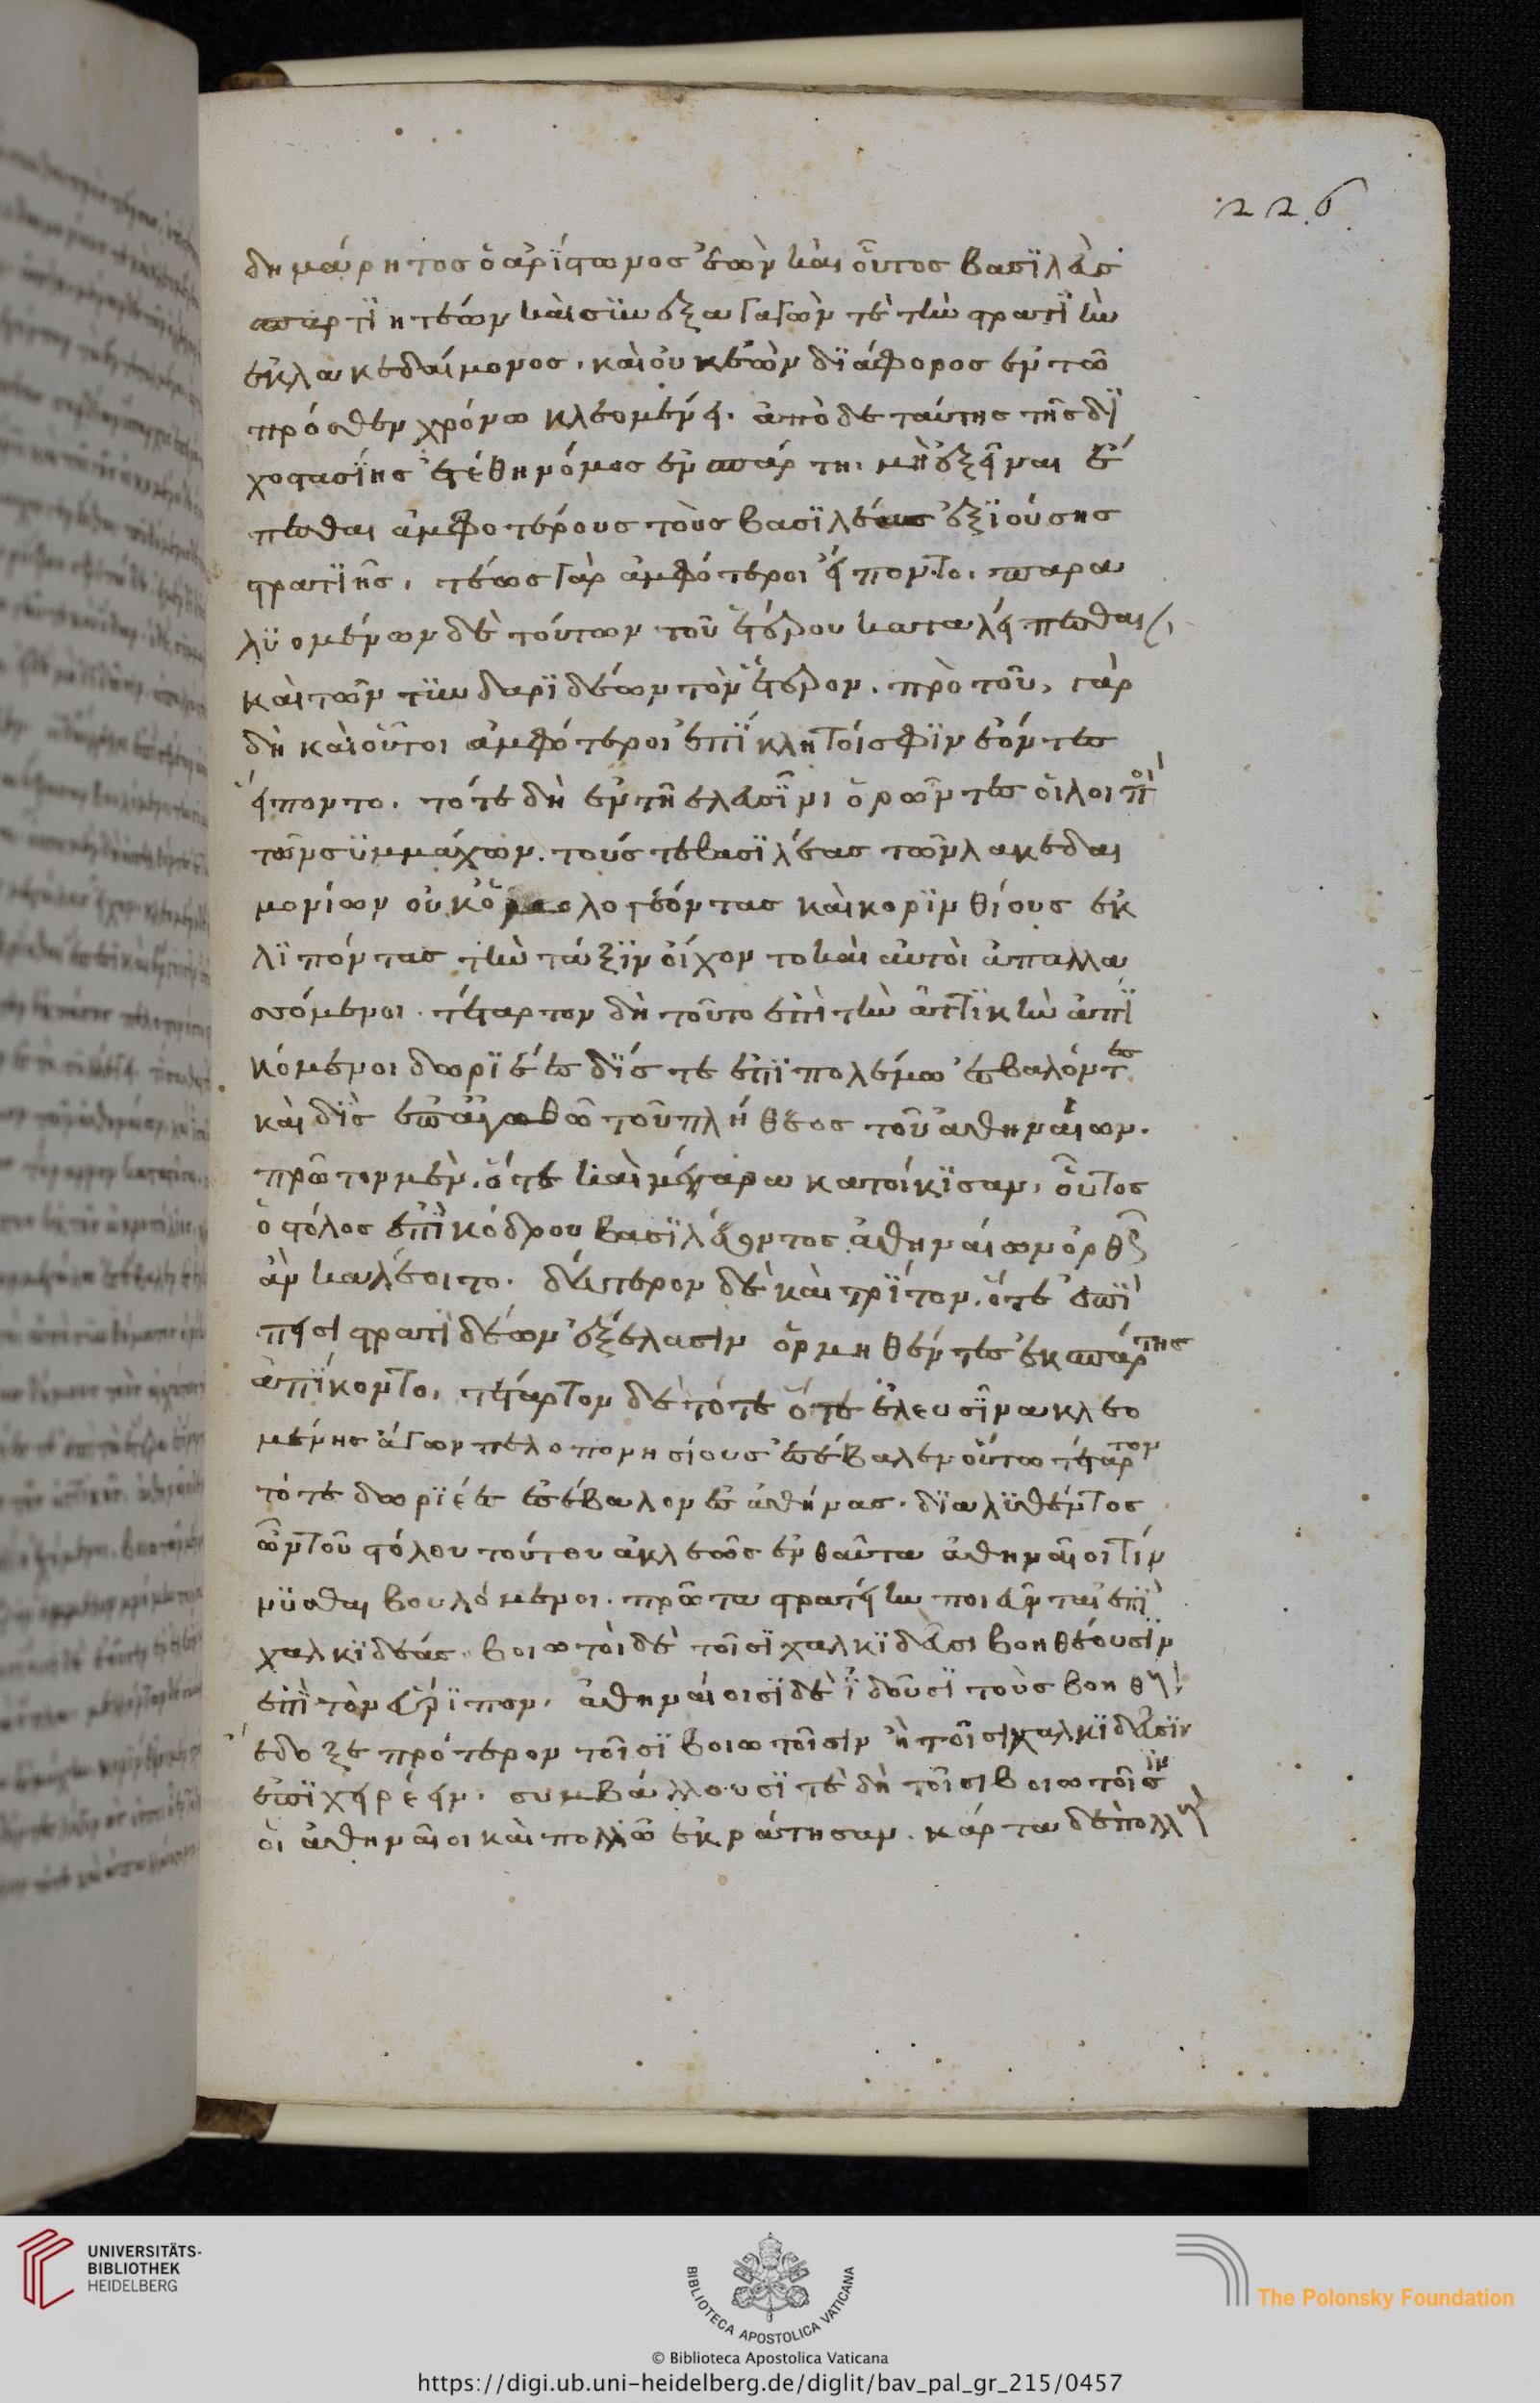 226
δημάρητος ὁ ἀρίστωνος ἐὼν καὶ οὗτος βασιλεὺς
σπαρτϊητέων καὶ συνεξαγαγών τὲ τὴν στρατιὴν
ἐκ λακεδαίμονος. καὶ οὐκ ἐὼν διάφορος ἐν τῶ
πρόσθεν χρόνω κλεομένει. ἀπὸ δὲ ταύτης τῆς δϊ
χοστασίης ἐτέθη νόμος ἐν σπάρτη. μὴ ἐξεῖναι ἕ
πεσθαι ἀμφοτέρους τοὺς βασιλέας ἐξιούσης
στρατιῆς. τέως γὰρ ἀμφότεροι εἵποντο. παρα
λϋομένων δὲ τούτων τοῦ ἑτέρου καταλείπεσθαι
καὶ τῶν τϋνδαρϊδέων τὸν ἕτερον. πρὸ τοῦ, γὰρ
δὴ καὶ οὗτοι ἀμφότεροι ἐπίκλητοί σφϊν ἐόντες
εἵποντο. τότε δὴ ἐν τῆ ἐλευσῖνι ὁρῶντες οἱ λοιποὶ
τῶν συμμάχων. τούς τε βασιλέας τῶν λακεδαι
μονίων οὐκ ὁμολογέοντας καὶ κορινθίους ἐκ
λιπόντας τὴν τάξϊν οἴχοντο καὶ αὐτοὶ ἀπαλλα
σσόμενοι. τέταρτον δὴ τοῦτο ἐπὶ τὴν ἀττικὴν ἀπϊ
κόμενοι δωριέες δίς τε ἐπὶ πολέμω ἐσβαλόντες
καὶ δὶς ἐπ' ἀγαθῶ τοῦ πλήθεος τοῦ ἀθηναίων.
πρῶτον μὲν. ὅτε καὶ μέγαρα κατοίκισαν, οὗτος
ὁ στόλος ἐπὶ κόδρου βασιλεύοντος ἀθηναίων ὀρθῶς
ἂν καλέοιτο. δεύτερον δὲ καὶ τρίτον. ὅτε ἐπὶ
πεισιστρατιδέων ἐξέλασιν ὁρμηθέντες ἐκ σπάρτης
ἀπίκοντο. τέταρτον δὲ τότε ὅτε ἐλευσῖνα κλεο
μένης ἄγων πελοπονησίους ἐσέβαλεν οὕτω τέταρτον
τότε δωριέες ἐσέβαλον ἐς ἀθήνας. διαλυθέντος
ὦν τοῦ στόλου τούτου ἀκλεῶς ἐνθαῦτα ἀθηναῖοι τίν
νϋσθαι βουλόμενοι. πρῶτα στρατείην ποιεῦνται ἐπὶ
χαλκϊδέας. βοιωτοὶ δὲ τοῖσϊ χαλκϊδεῦσι βοηθέουσιν
ἐπὶ τὸν εὔρϊπον. ἀθηναίοισϊ δὲ ἰδοῦσϊ τοὺς βοηθοὺς
ἔδοξε πρότερον τοῖσϊ βοιωτοῖσιν ἢ τοῖσι χαλκϊδεῦσϊν
ἐπϊχειρέειν. συμβάλλουσί τε δὴ τοῖσι βοιωτοῖσιν
οἱ ἀθηναῖοι καὶ πολλῶ ἐκράτησαν. κάρτα δὲ πολλοὺς
UNIVERSITÄTS-
BIBLIOTHEK
HEIDELBERG
BIBLIOTECA APOSTOLICA VATICANA
The Polonsky Foundation
© Biblioteca Apostolica Vaticana
https://digi.ub.uni-heidelberg.de/diglit/bav_pal_gr_215/0457